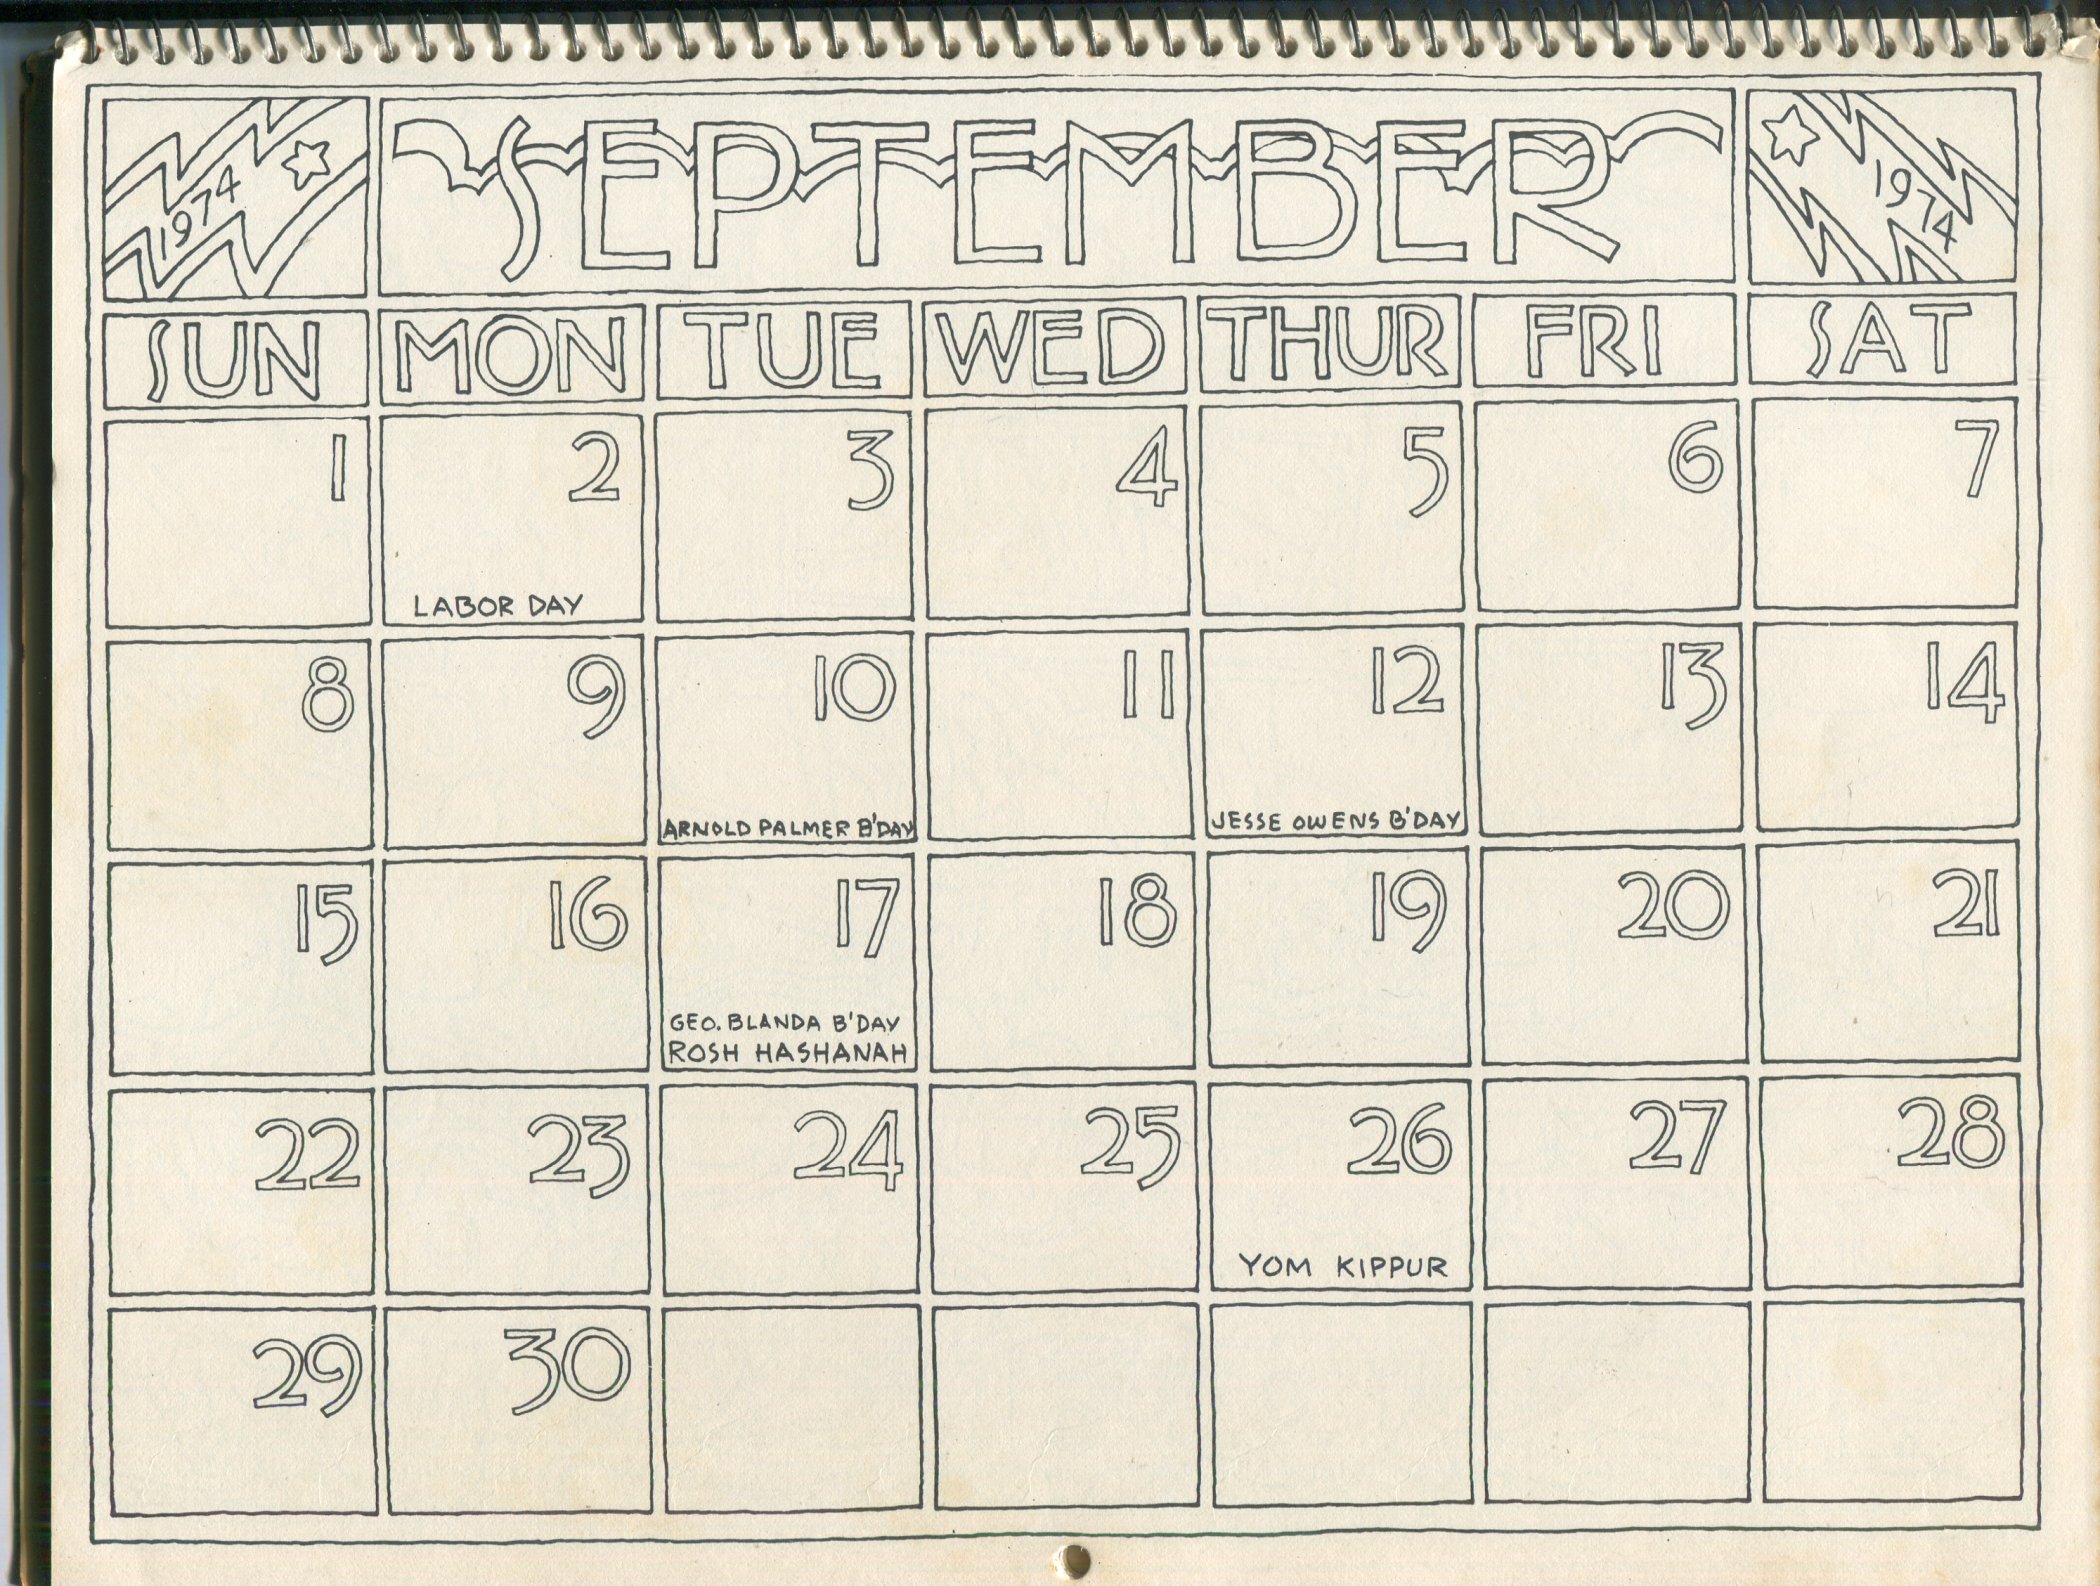 1974 SEPTEMBER 1974
SUN MON TUE WED THUR FRI SAT
1 2 3 4 5 6 7
LABOR DAY
8 9 10 11 12 13 14
ARNOLD PALMER B'DAY JESSE OWENS B'DAY
15 16 17 18 19 20 21
GEO. BLANDA B'DAY
ROSH HASHANAH
22 23 24 25 26 27 28
YOM KIPPUR
29 30